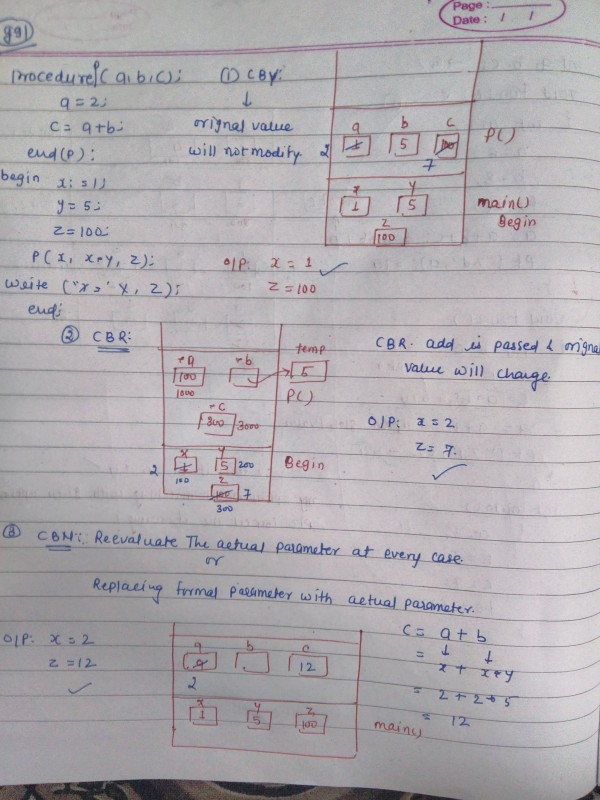 Page :
Date : / /
991
procedure P( a,b,c);
a = 2;
c = a+b;
end(P);
begin x := 1;
y = 5;
z = 100;
P( x, x*y, z);
write ("x=" x, z);
end;
(1) CBV:
↓
orignal value
will not modify.
O/P: x = 1 ✓
z = 100
a b c
2 1 5 100
7
P()
x y
1 5
z
100
main()
Begin
② CBR:
a b temp
100 5
1000
P()
c
300 3000
x y
2 1 5 200
100
z
100 7
300
Begin
CBR- add is passed & orignal
value will change.
O/P: x = 2
z = 7.
✓
③ CBN:: Reevaluate The actual parameter at every case.
or
Replacing formal parameter with actual parameter.
O/P: x = 2
z = 12
✓
a b c
12
2
x y z
1 5 100
main()
c = a + b
= ↓ ↓
x + x*y
= 2 + 2*5
= 12